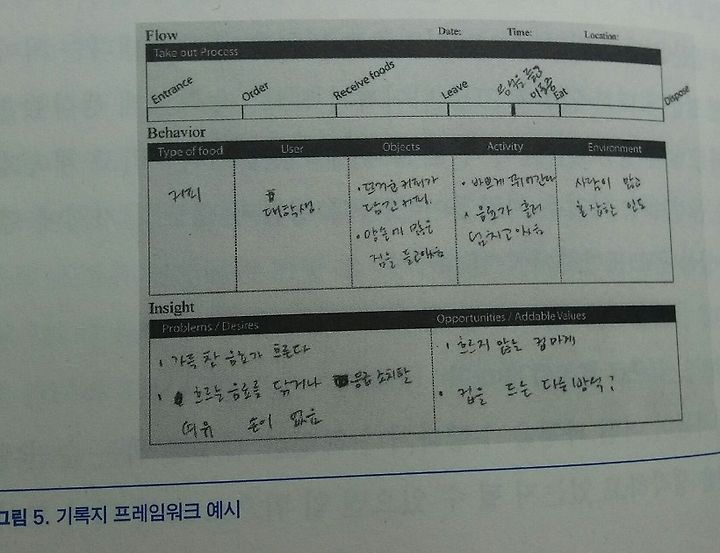 Flow Date: Time: Location:
Take out Process
Entrance Order Receive foods Leave 음식을 들고 이동중 Eat Dispose
Behavior
Type of food User Objects Activity Environment
커피 대학생
• 뜨거운 커피가 담긴 커피.
• 양손에 많은
짐을 들고있음
• 바쁘게 뛰어간다
• 음료가 흘러
넘치고 있음
사람이 많고
혼잡한 인도
Insight
Problems / Desires Opportunities / Addable Values
• 가득 찬 음료가 흐른다
• 흐르는 음료를 닦거나 응급조치할
여유 손이 없음
• 흐르지 않는 컵마개
• 컵을 드는 다른 방식?
그림 5. 기록지 프레임워크 예시